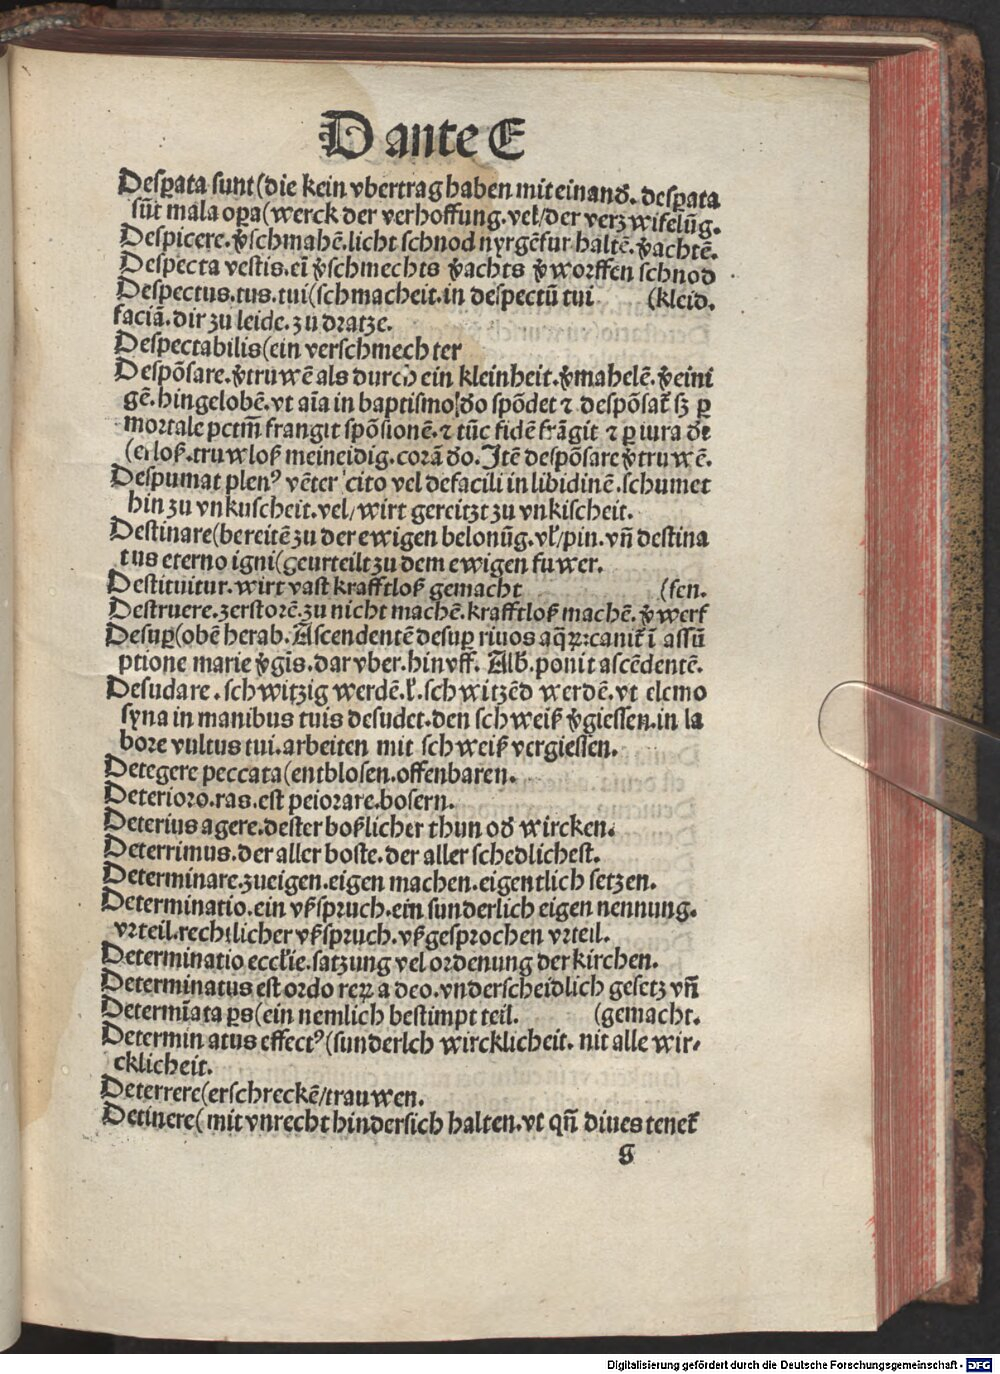 D ante E
Desꝑata sunt(die kein vbertrag haben mit einanđ. desꝑata
sūt mala oꝑa(werck der verhoffung. vel/der verzwifelūg.
Despicere. ꝟschmahē. licht schnod nyrgēfur haltē. ꝟachtē.
Despecta vestis. eī ꝟschmechts ꝟachts ꝟworffen schnod
Despectus. tus. tui(schmacheit. in despectū tui (kleid.
faciā. dir zu leide. zu dratze.
Despectabilis(ein verschmechter
Despōsare. ꝟtruwē als durch ein kleinheit. ꝟmahelē. ꝟeini
gē. hingelobē. vt aīa in baptismo đo spōdet ⁊ despōsat̄ sꝫ ꝑ
mortale pctm̄ frangit spōsionē. ⁊ tūc fidē frāgit ⁊ ꝑiura đe
(erloß. truwloß meineidig. corā đo. Itē despōsare ꝟtruwē.
Despumat plenꝰ vēter cito vel defacili in libidinē. schumet
hin zu vnkuscheit. vel/wirt gereitzt zu vnkischeit.
Destinare(bereitē zu der ewigen belonūg. vl̄/pin. vn̄ destina
tus eterno igni(geurteilt zu dem ewigen fuwer.
Destituitur. wirt vast krafftloß gemacht (fen.
Destruere. zerstorē. zu nicht machē. krafftloß machē. ꝟwerf
Desuꝑ(obē herab. Ascendentē desuꝑ riuos aq̄ꝝ: canit̄ ī assū
ptione marie ꝟgīs. dar vber. hin vff. Alb̄. ponit ascēdentē.
Desudare. schwitzig werdē. l̄. schwitzēd werdē. vt elemo
syna in manibus tuis desudet. den schweiß ꝟgiessen. in la
bore vultus tui. arbeiten mit schweiß vergiessen.
Detegere peccata(entblosen. offenbaren.
Deterioro. ras. est peiorare. bosern.
Deterius agere. dester boßlicher thun ođ wircken.
Deterrimus. der aller boste. der aller schedlichest.
Determinare. zueigen. eigen machen. eigentlich setzen.
Determinatio. ein vßspruch. ein sunderlich eigen nennung.
vrteil. rechtlicher vßspruch. vßgesprochen vrteil.
Determinatio eccl̄ie. satzung vel ordenung der kirchen.
Determinatus est ordo reꝝ a deo. vnderscheidlich gesetz vn̄
Determīata ꝑs(ein nemlich bestimpt teil. (gemacht.
Determin atus effectꝰ(sunderlch wircklicheit. nit alle wir-
cklicheit.
Deterrere(erschreckē/trauwen.
Detinere( mit vnrecht hindersich halten. vt qn̄ diues tenet̄
g
Digitalisierung gefördert durch die Deutsche Forschungsgemeinschaft - DFG